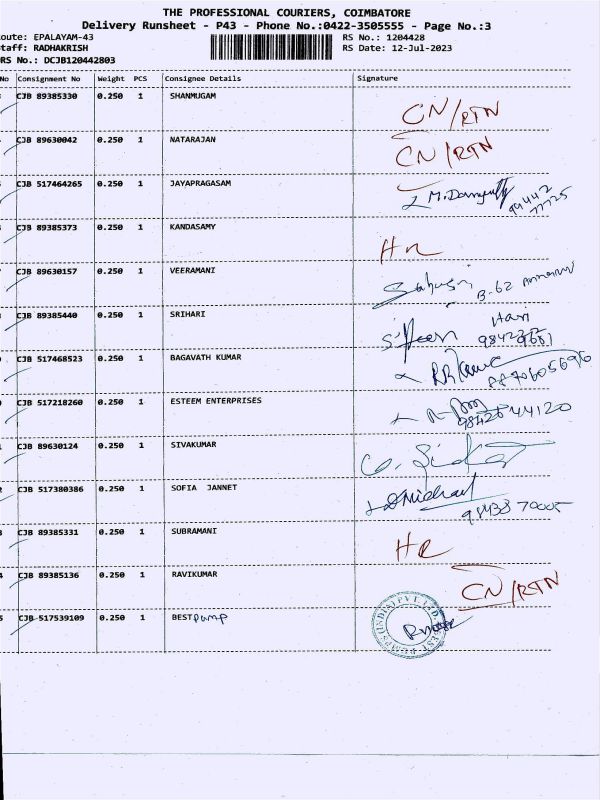 THE PROFESSIONAL COURIERS, COIMBATORE
Delivery Runsheet - P43 - Phone No.:0422-3505555 - Page No.:3
oute: EPALAYAM-43 RS No.: 1204428
taff: RADHAKRISH RS Date: 12-Jul-2023
RS No.: DCJB120442803
No Consignment No Weight PCS Consignee Details Signature
CJB 89385330 0.250 1 SHANMUGAM CN/RTN
CJB 89630042 0.250 1 NATARAJAN CN/RTN
CJB 517464265 0.250 1 JAYAPRAGASAM
99442
77725
CJB 89385373 0.250 1 KANDASAMY
CJB 89630157 0.250 1 VEERAMANI B-62
CJB 89385440 0.250 1 SRIHARI Hari
CJB 517468523 0.250 1 BAGAVATH KUMAR
CJB 517218260 0.250 1 ESTEEM ENTERPRISES
CJB 89630124 0.250 1 SIVAKUMAR
CJB 517380386 0.250 1 SOFIA JANNET
CJB 89385331 0.250 1 SUBRAMANI
CJB 89385136 0.250 1 RAVIKUMAR CN/RTN
CJB 517539109 0.250 1 BEST pump